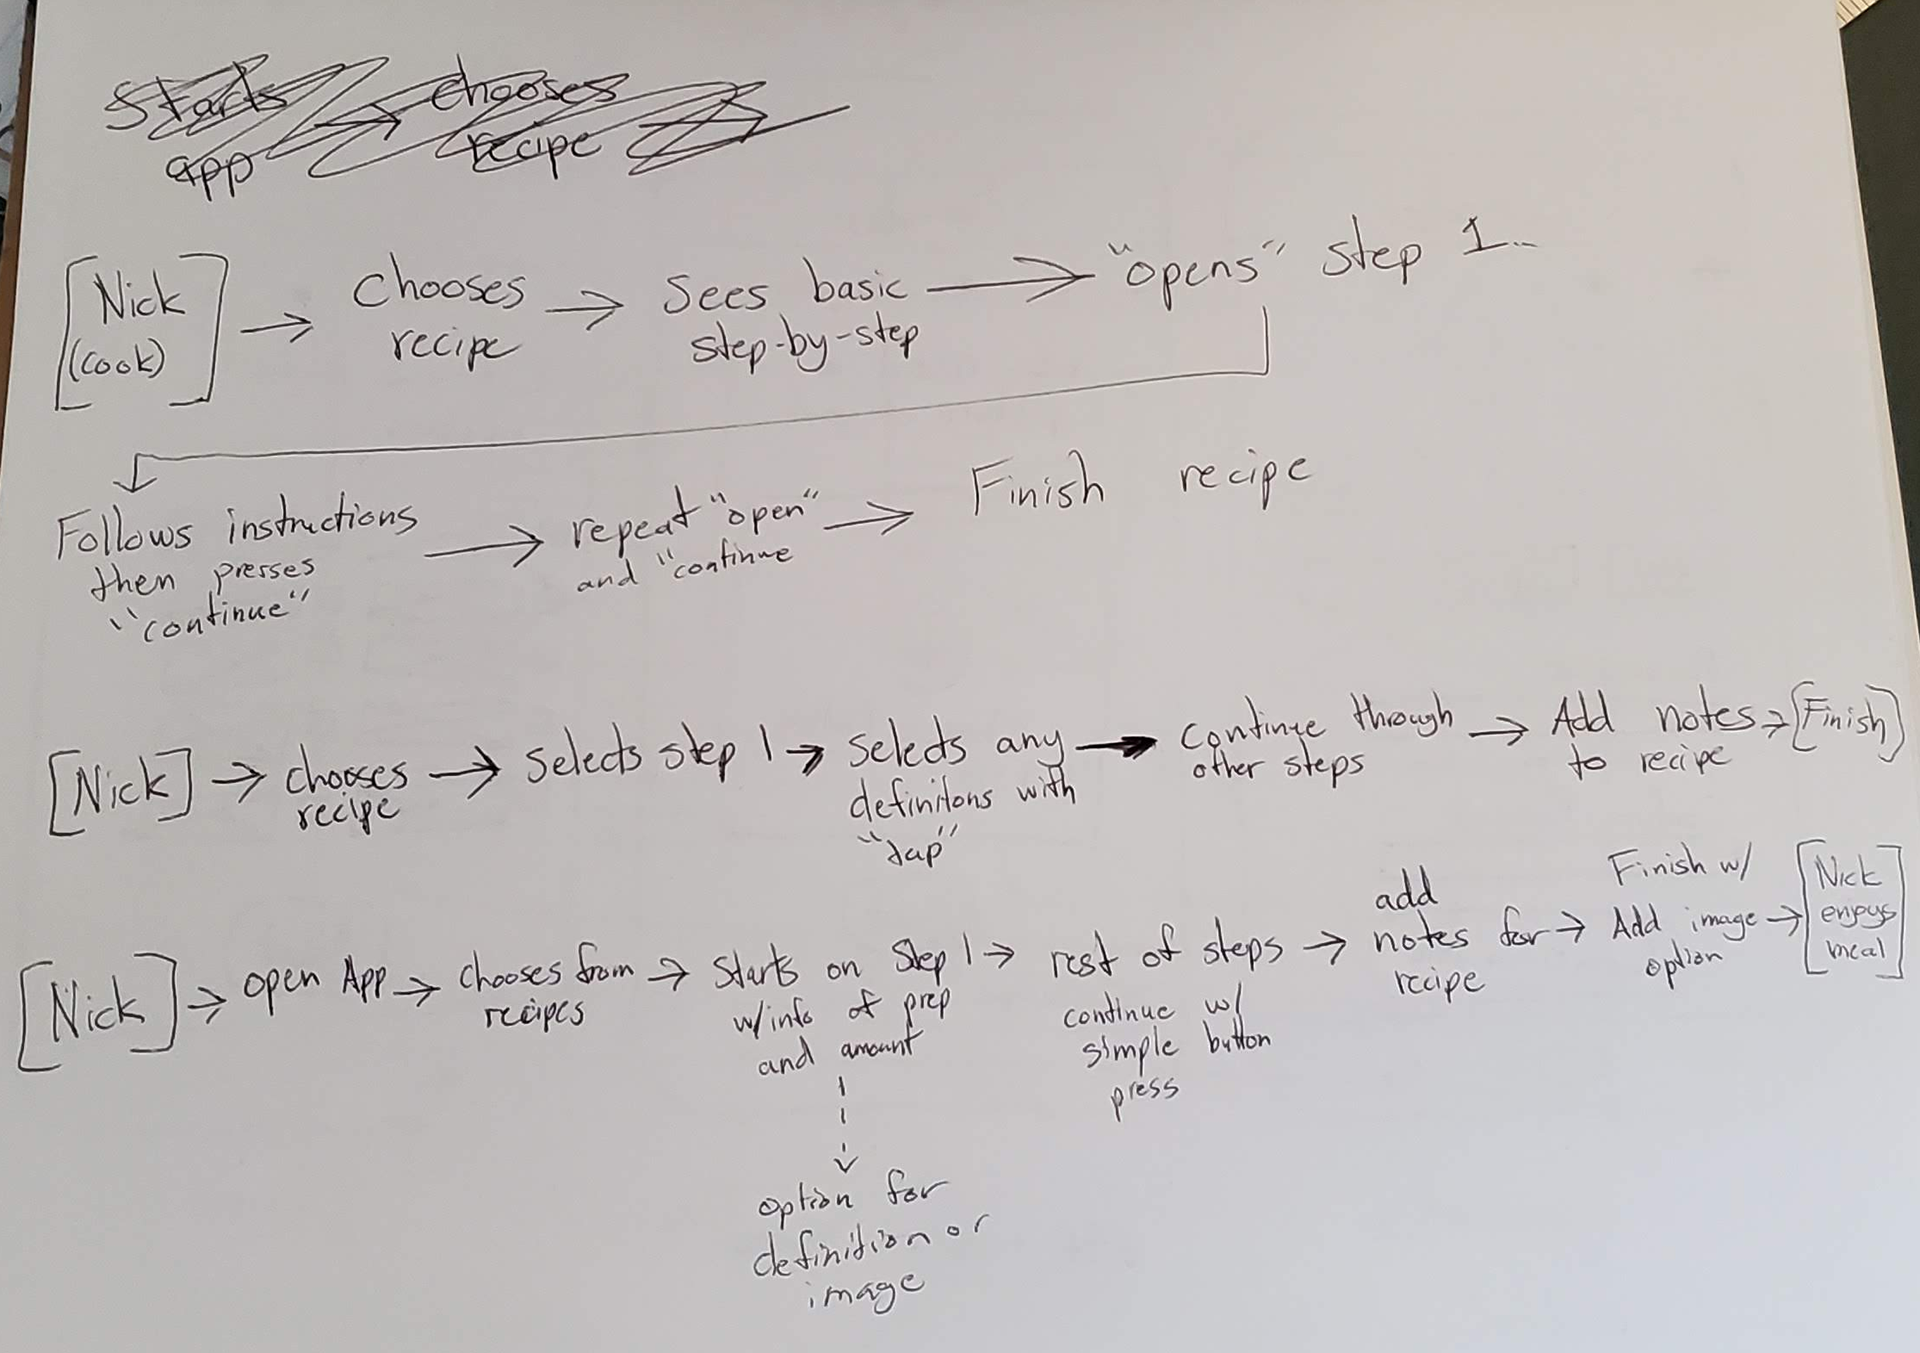 Starts
app
chooses
recipe
[Nick
(cook)]
chooses
recipe
Sees basic
step-by-step
"opens" step 1..
Follows instructions
then presses
"continue"
repeat "open"
and "continue
Finish recipe
[Nick]
chooses
recipe
Selects step 1
Selects any
definitons with
"tap"
continue through
other steps
Add notes
to recipe
[Finish]
[Nick]
open App
chooses from
recipes
Starts on Step 1
w/info of prep
and amount
option for
definition or
image
rest of steps
continue w/
simple button
press
add
notes for
recipe
Finish w/
Add image
option
[Nick
enjoys
meal]